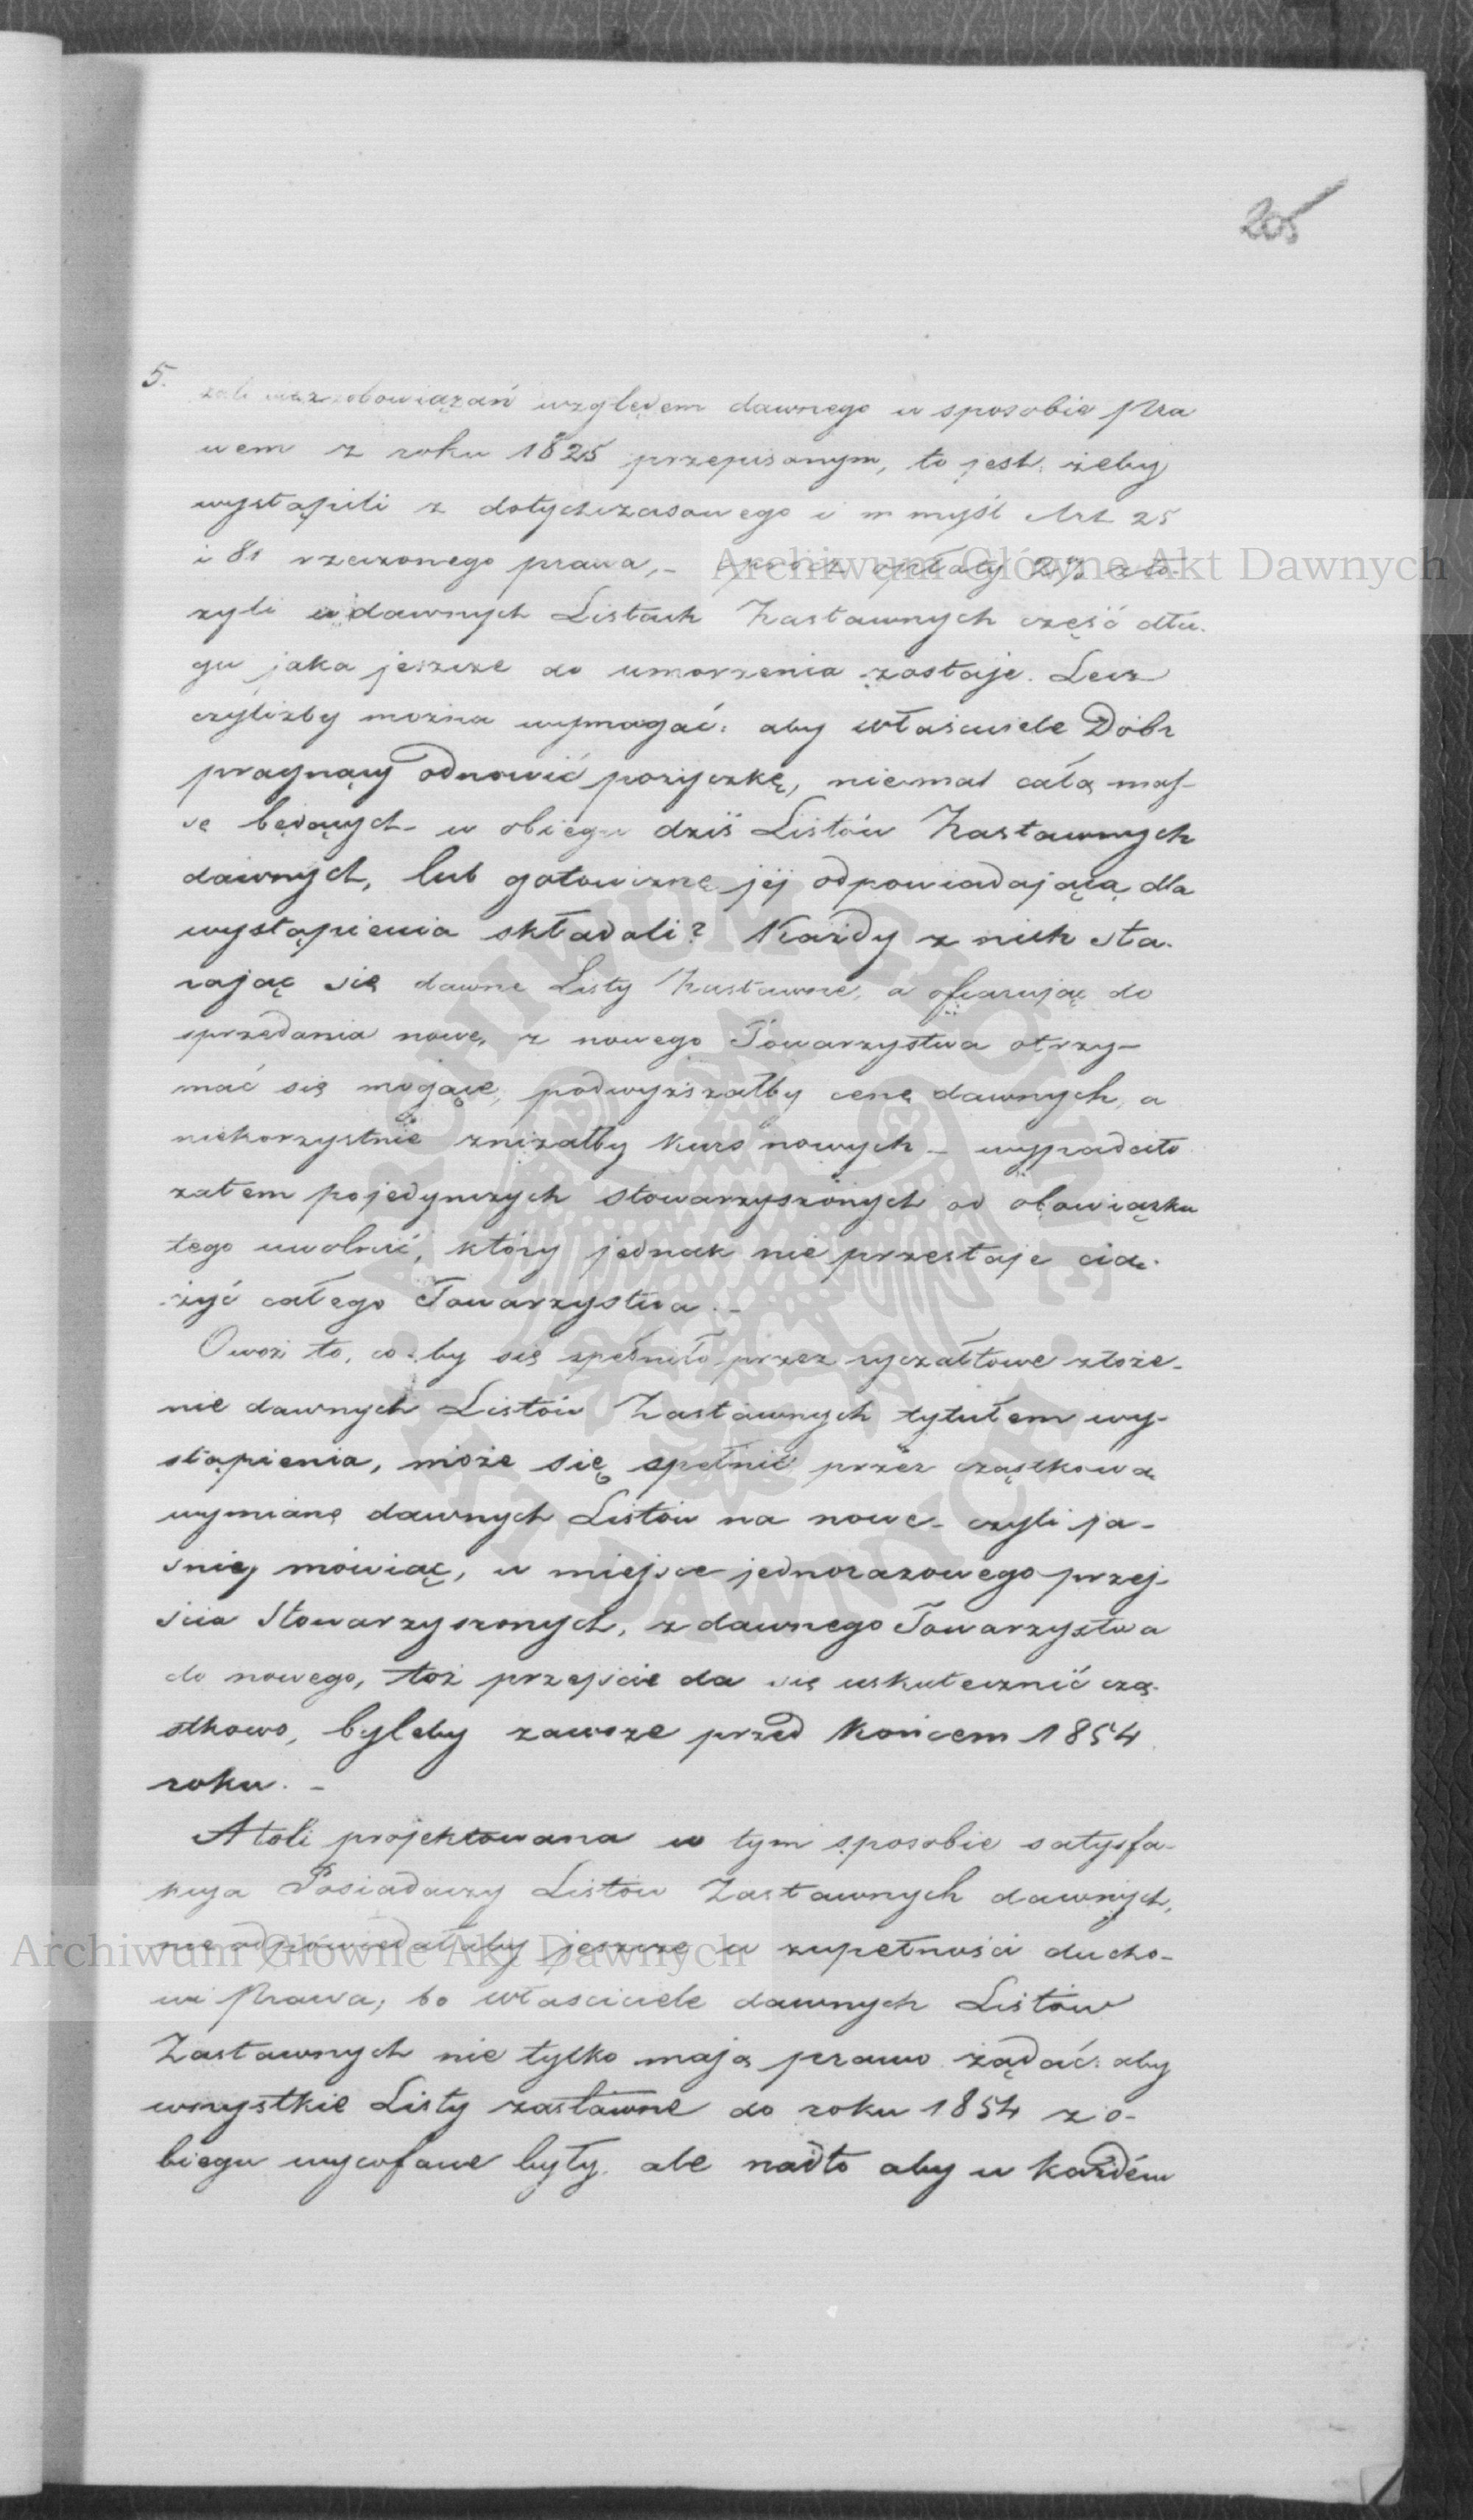 205
5.
zobowiązań względem dawnego w sposobie Pra
wem z roku 1825 przepisanym, to jest: żeby
wystąpili z dotychczasowego i w myśl Art 25
i 81 rzeczonego prawa, - oprócz opłaty 2% zło
żyli w dawnych Listach Zastawnych część dłu-
gu jaka jeszcze do umorzenia zostaje. Lecz
czyliżby można wymagać: aby właściciele Dóbr
pragnący odnowić pożyczkę, niemal całą mas-
sę będących w obiegu dziś Listów Zastawnych
dawnych, lub gotowiznę jéj odpowiadającą dla
wystąpienia składali? Każdy z nich sta-
rając się dawne Listy Zastawne, a ofiarując do
sprzedania nowe, z nowego Towarzystwa otrzy-
mać się mogące, podwyższałby cenę dawnych, a
niekorzystnie zniżałby kurs nowych - wypadało
zatem pojedynczych stowarzyszonych od obowiązku
tego uwolnić, który jednak nie przestaje cią-
żyć całego Towarzystwa. -
Owoż to, co-by się spełniło przez ryczałtowe złoże-
nie dawnych Listów Zastawnych tytułem wy-
stąpienia, może się spełnić przez cząstkową
wymianę dawnych Listów na nowe - czyli ja-
śniej mówiąc, w miejsce jednorazowego przej-
ścia Stowarzyszonych, z dawnego Towarzystwa
do nowego, toż przejście da się uskutecznić czą-
stkowo, byleby zawsze przed Końcem 1854
roku. -
Atoli projektowana w tym sposobie satysfa-
kcya Posiadaczy Listów Zastawnych dawnych,
nie odpowiedałaby jeszcze w zupełności ducho-
wi Prawa, bo właściciele dawnych Listów
Zastawnych nie tylko mają prawo żądać: aby
wszystkie Listy zastawne do roku 1854 z o-
biegu wycofane były, ale nadto aby w każdém
Archiwum Główne Akt Dawnych
Archiwum Główne Akt Dawnych
ARCHIWUM GŁÓWNE AKT DAWNYCH